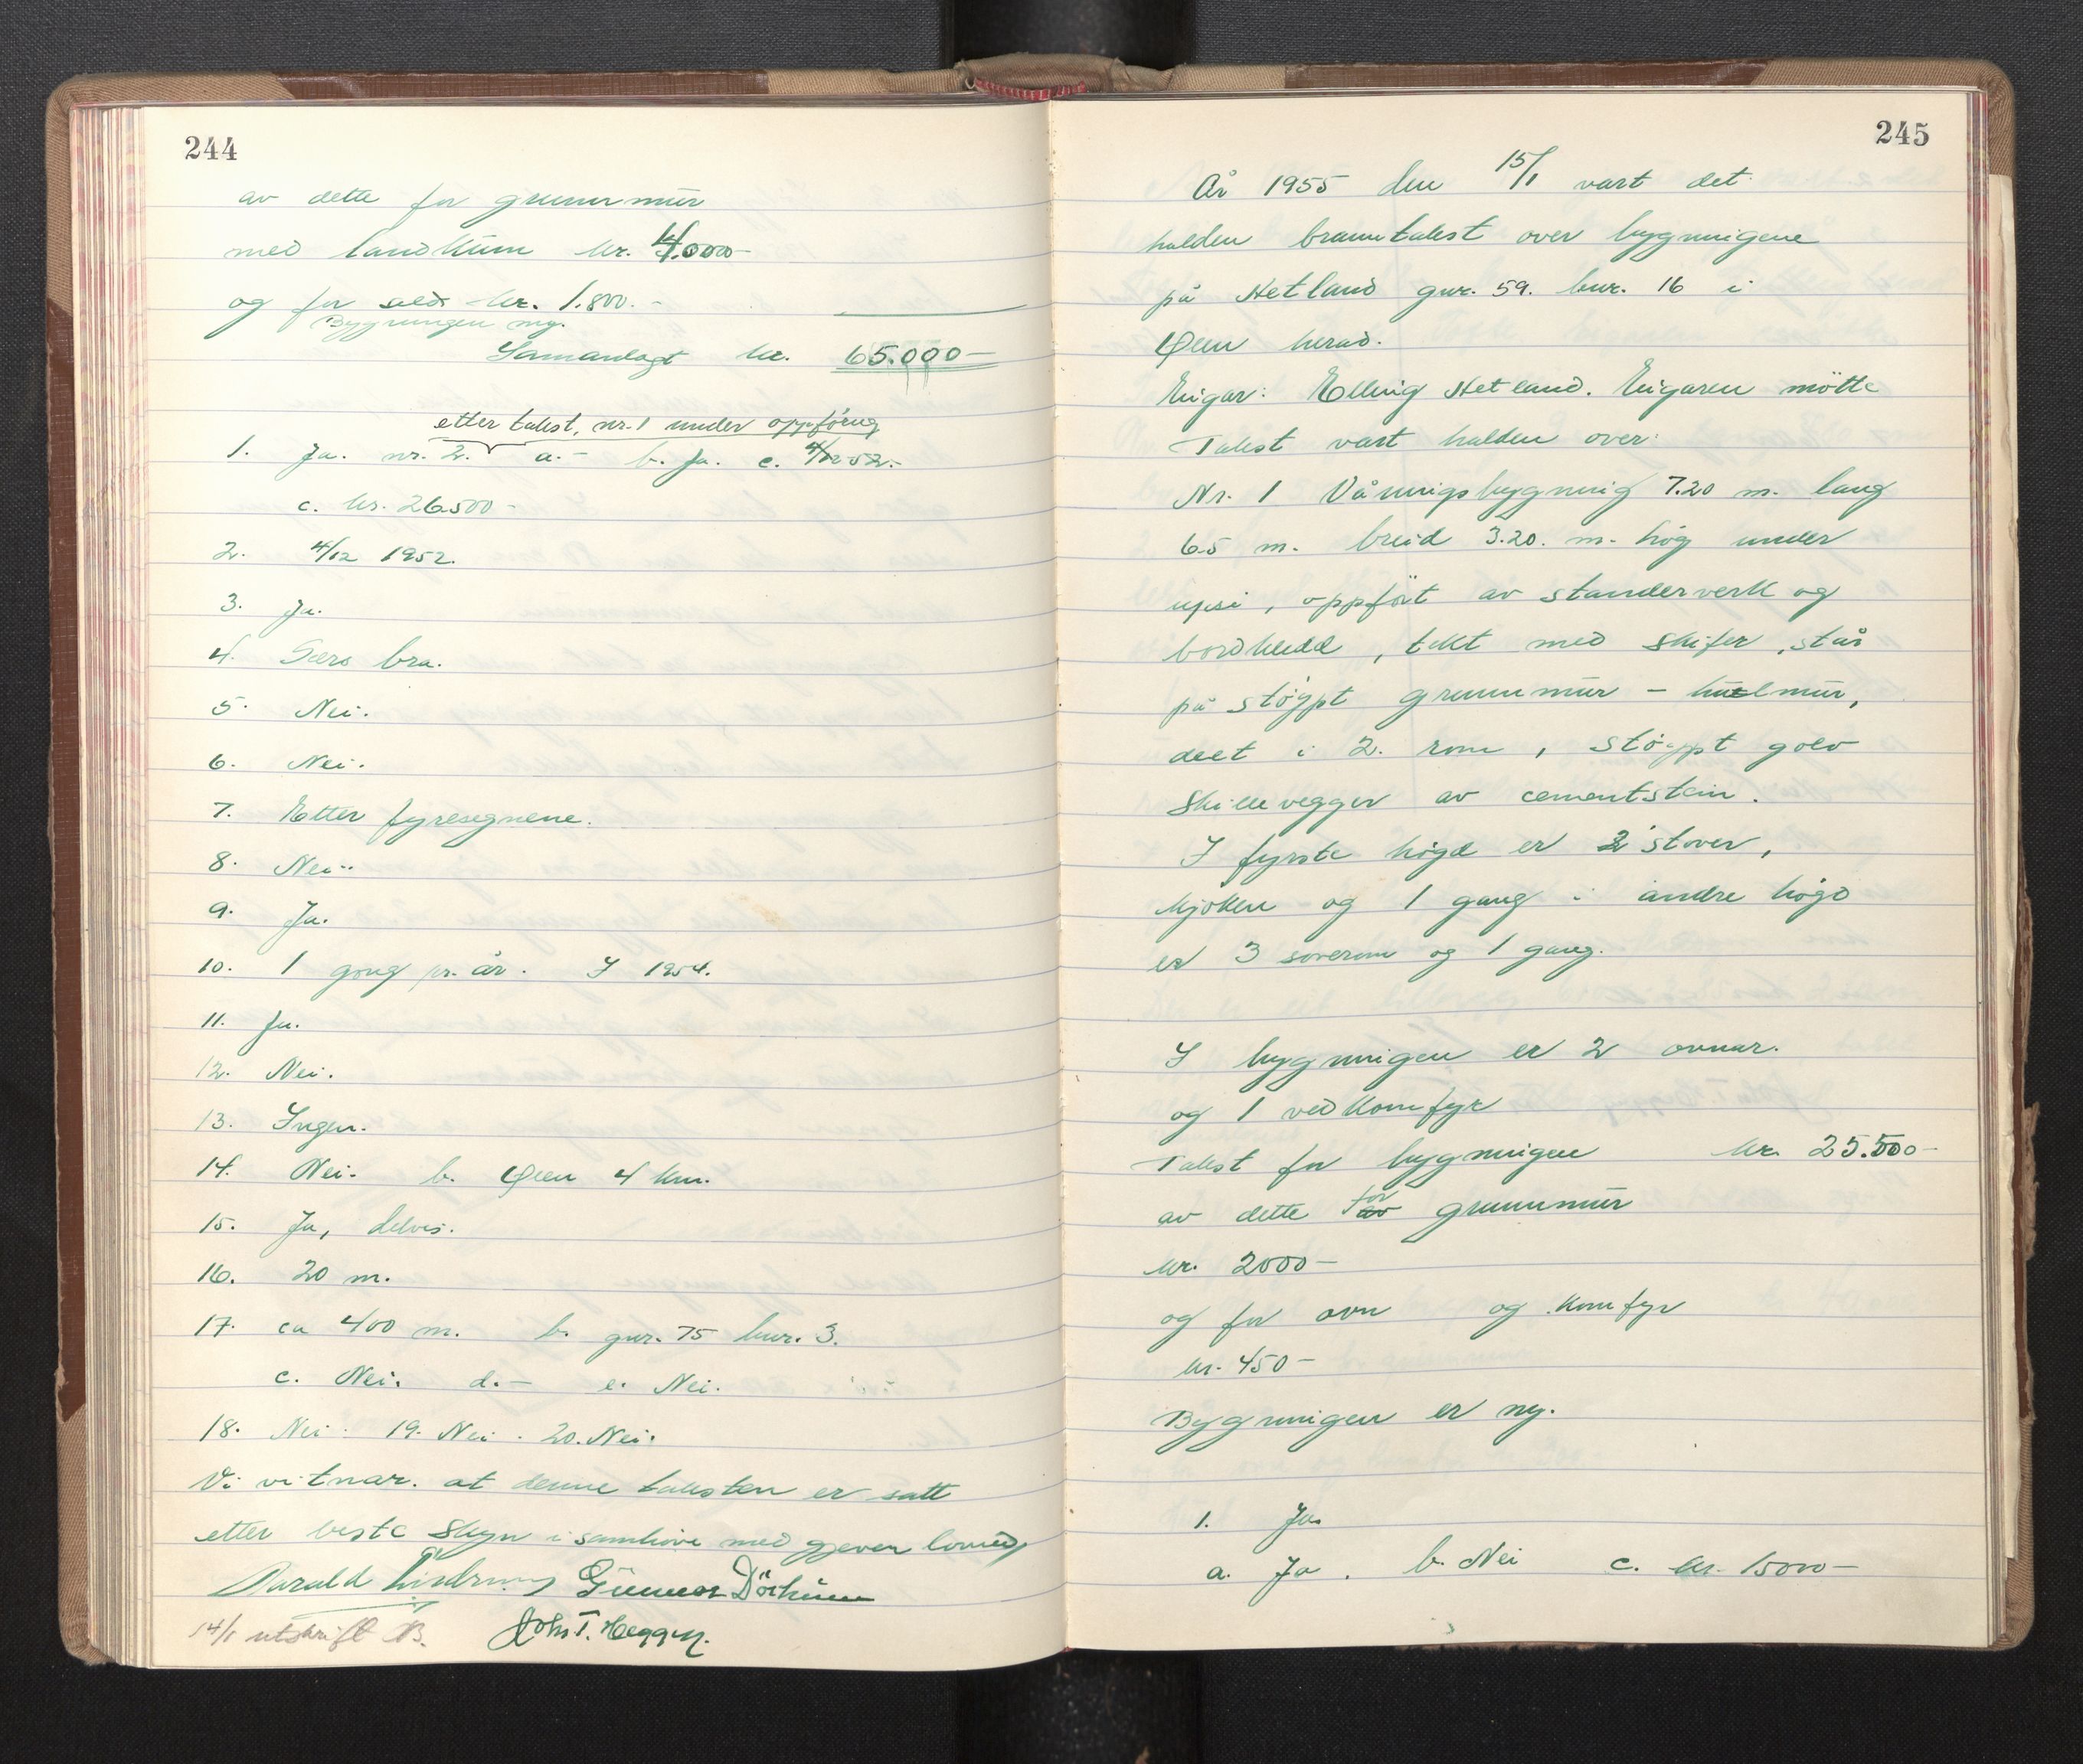 244
av dette for grunnmur
med landkum kr. 4.000-
og for kr. 1.800.-
Bygningen ny.
Samanlagt kr. 65.000-
etter takst, nr. 1 under oppföring
1. Ja. nr. 2. a.- b. Ja. c. 4/12 52.-
c. kr. 26500-
2. 4/12 1952.
3. Ja.
4. Særs bra.
5. Nei.
6. Nei.
7. Etter fyresegnene.
8. Nei.
9. Ja.
10. 1 gong pr. år. I 1954.
11. Ja.
12. Nei.
13. Ingen.
14. Nei. b. Ølen 4 km.
15. Ja, delvis.
16. 20 m.
17. ca 400 m. b. gnr. 75 bnr. 3.
c. Nei. d.- e. Nei.
18. Nei. 19. Nei. 20. Nei.
Vi vitnar. at denne taksten er satt
etter beste skyn i samhöve med gjeven lovnad,
Gunnar
14/1 utskrift B. John T. Heggen.
245
År 1955 den 15/1 vart det
halden branntakst over bygningene
på Hetland gnr. 59. bnr. 16 i
Ølen herad.
Eigar: Elling Hetland. Eigaren mötte
Takst vart halden over:
Nr. 1 Våningsbygning 7.20 m. lang
6.5 m. breid 3.20. m. høg under
upsi, oppfört av standerverk og
bordkledd, tekt med skifer, står
på støypt grunnmur - hulmur,
delt i 2. rom, støypt golv
skillevegger av cementstein.
I fyrste høgd er 2 stover,
kjøken og 1 gang i andre høgd
er 3 soverom og 1 gang.
I bygningen er 2 ovnar.
og 1 vedkomfyr
Takst for bygningen kr. 25.500-
av dette for av grunnmur
kr. 2000-
og for ovn og komfyr
kr. 450-
Bygningen er ny.
1. Ja
a. Ja. b. Nei c. kr. 15000-